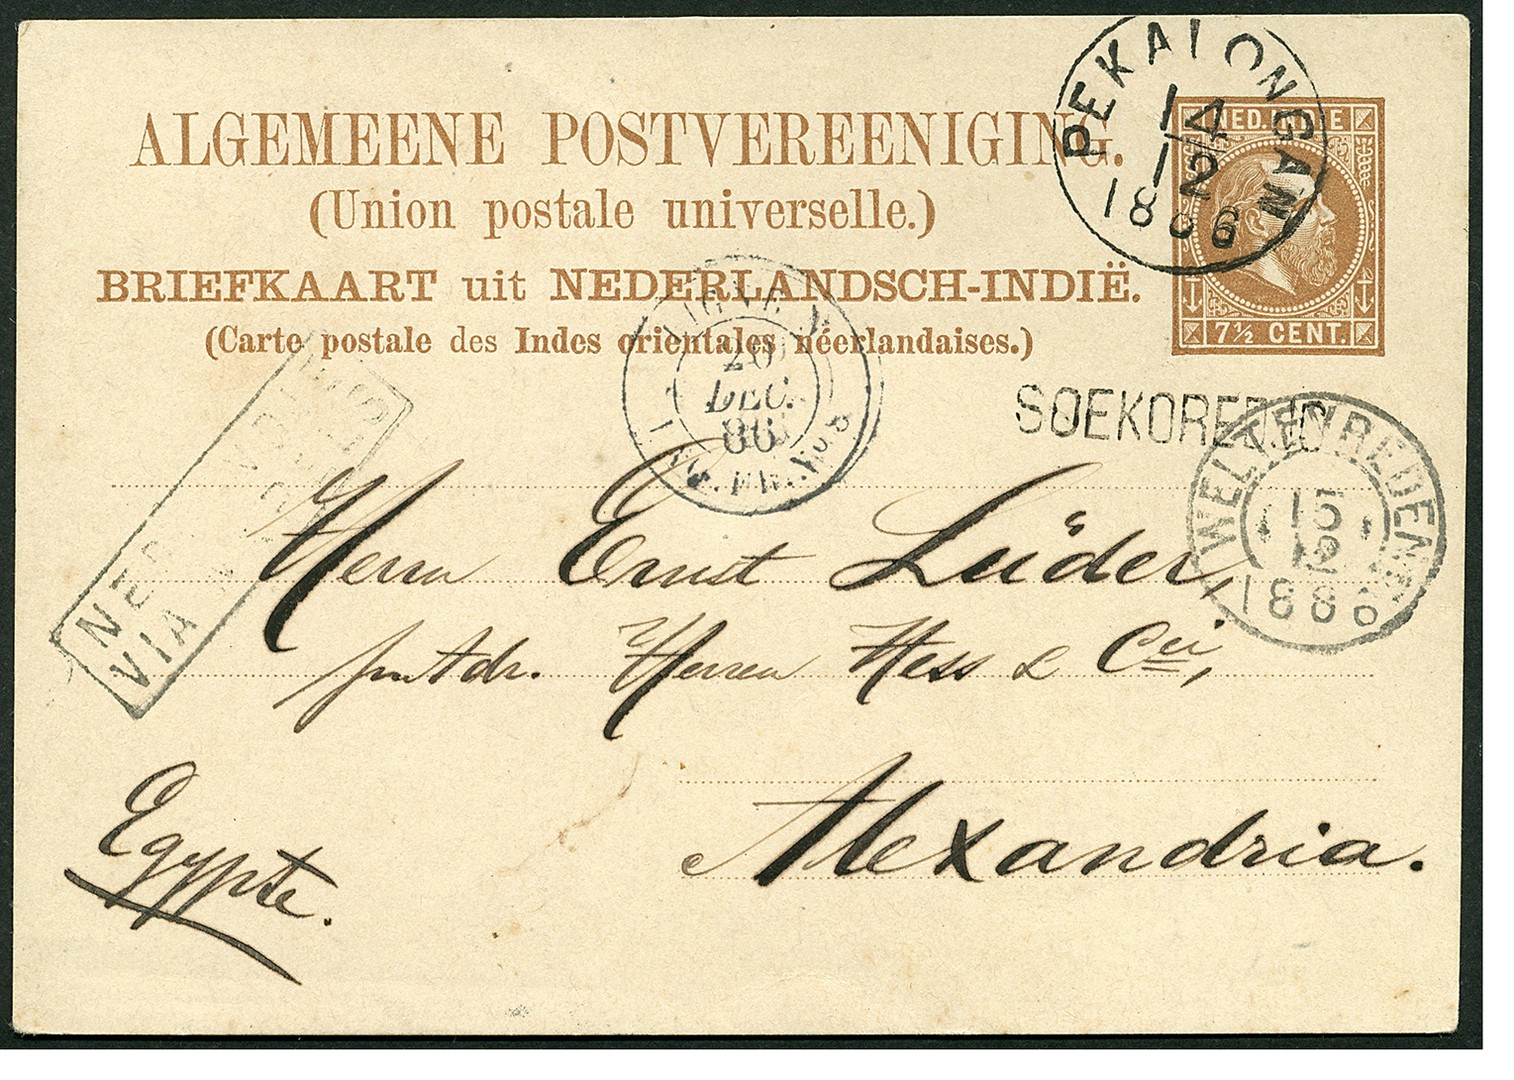 ALGEMEENE POSTVEREENIGING.
(Union postale universelle.)
BRIEFKAART uit NEDERLANDSCH-INDIË.
(Carte postale des Indes orientales néerlandaises.)
PEKALONGAN
14
12
1886
NED. INDIE
7½ CENT.
LIGNE N
20
DEC.
86
SOEKOREDJO
WELTEVREDEN
15
12
1886
NED
VIA
Herrn Ernst Lüder,
Herren Hess & Cie,
Alexandria.
Egypte.